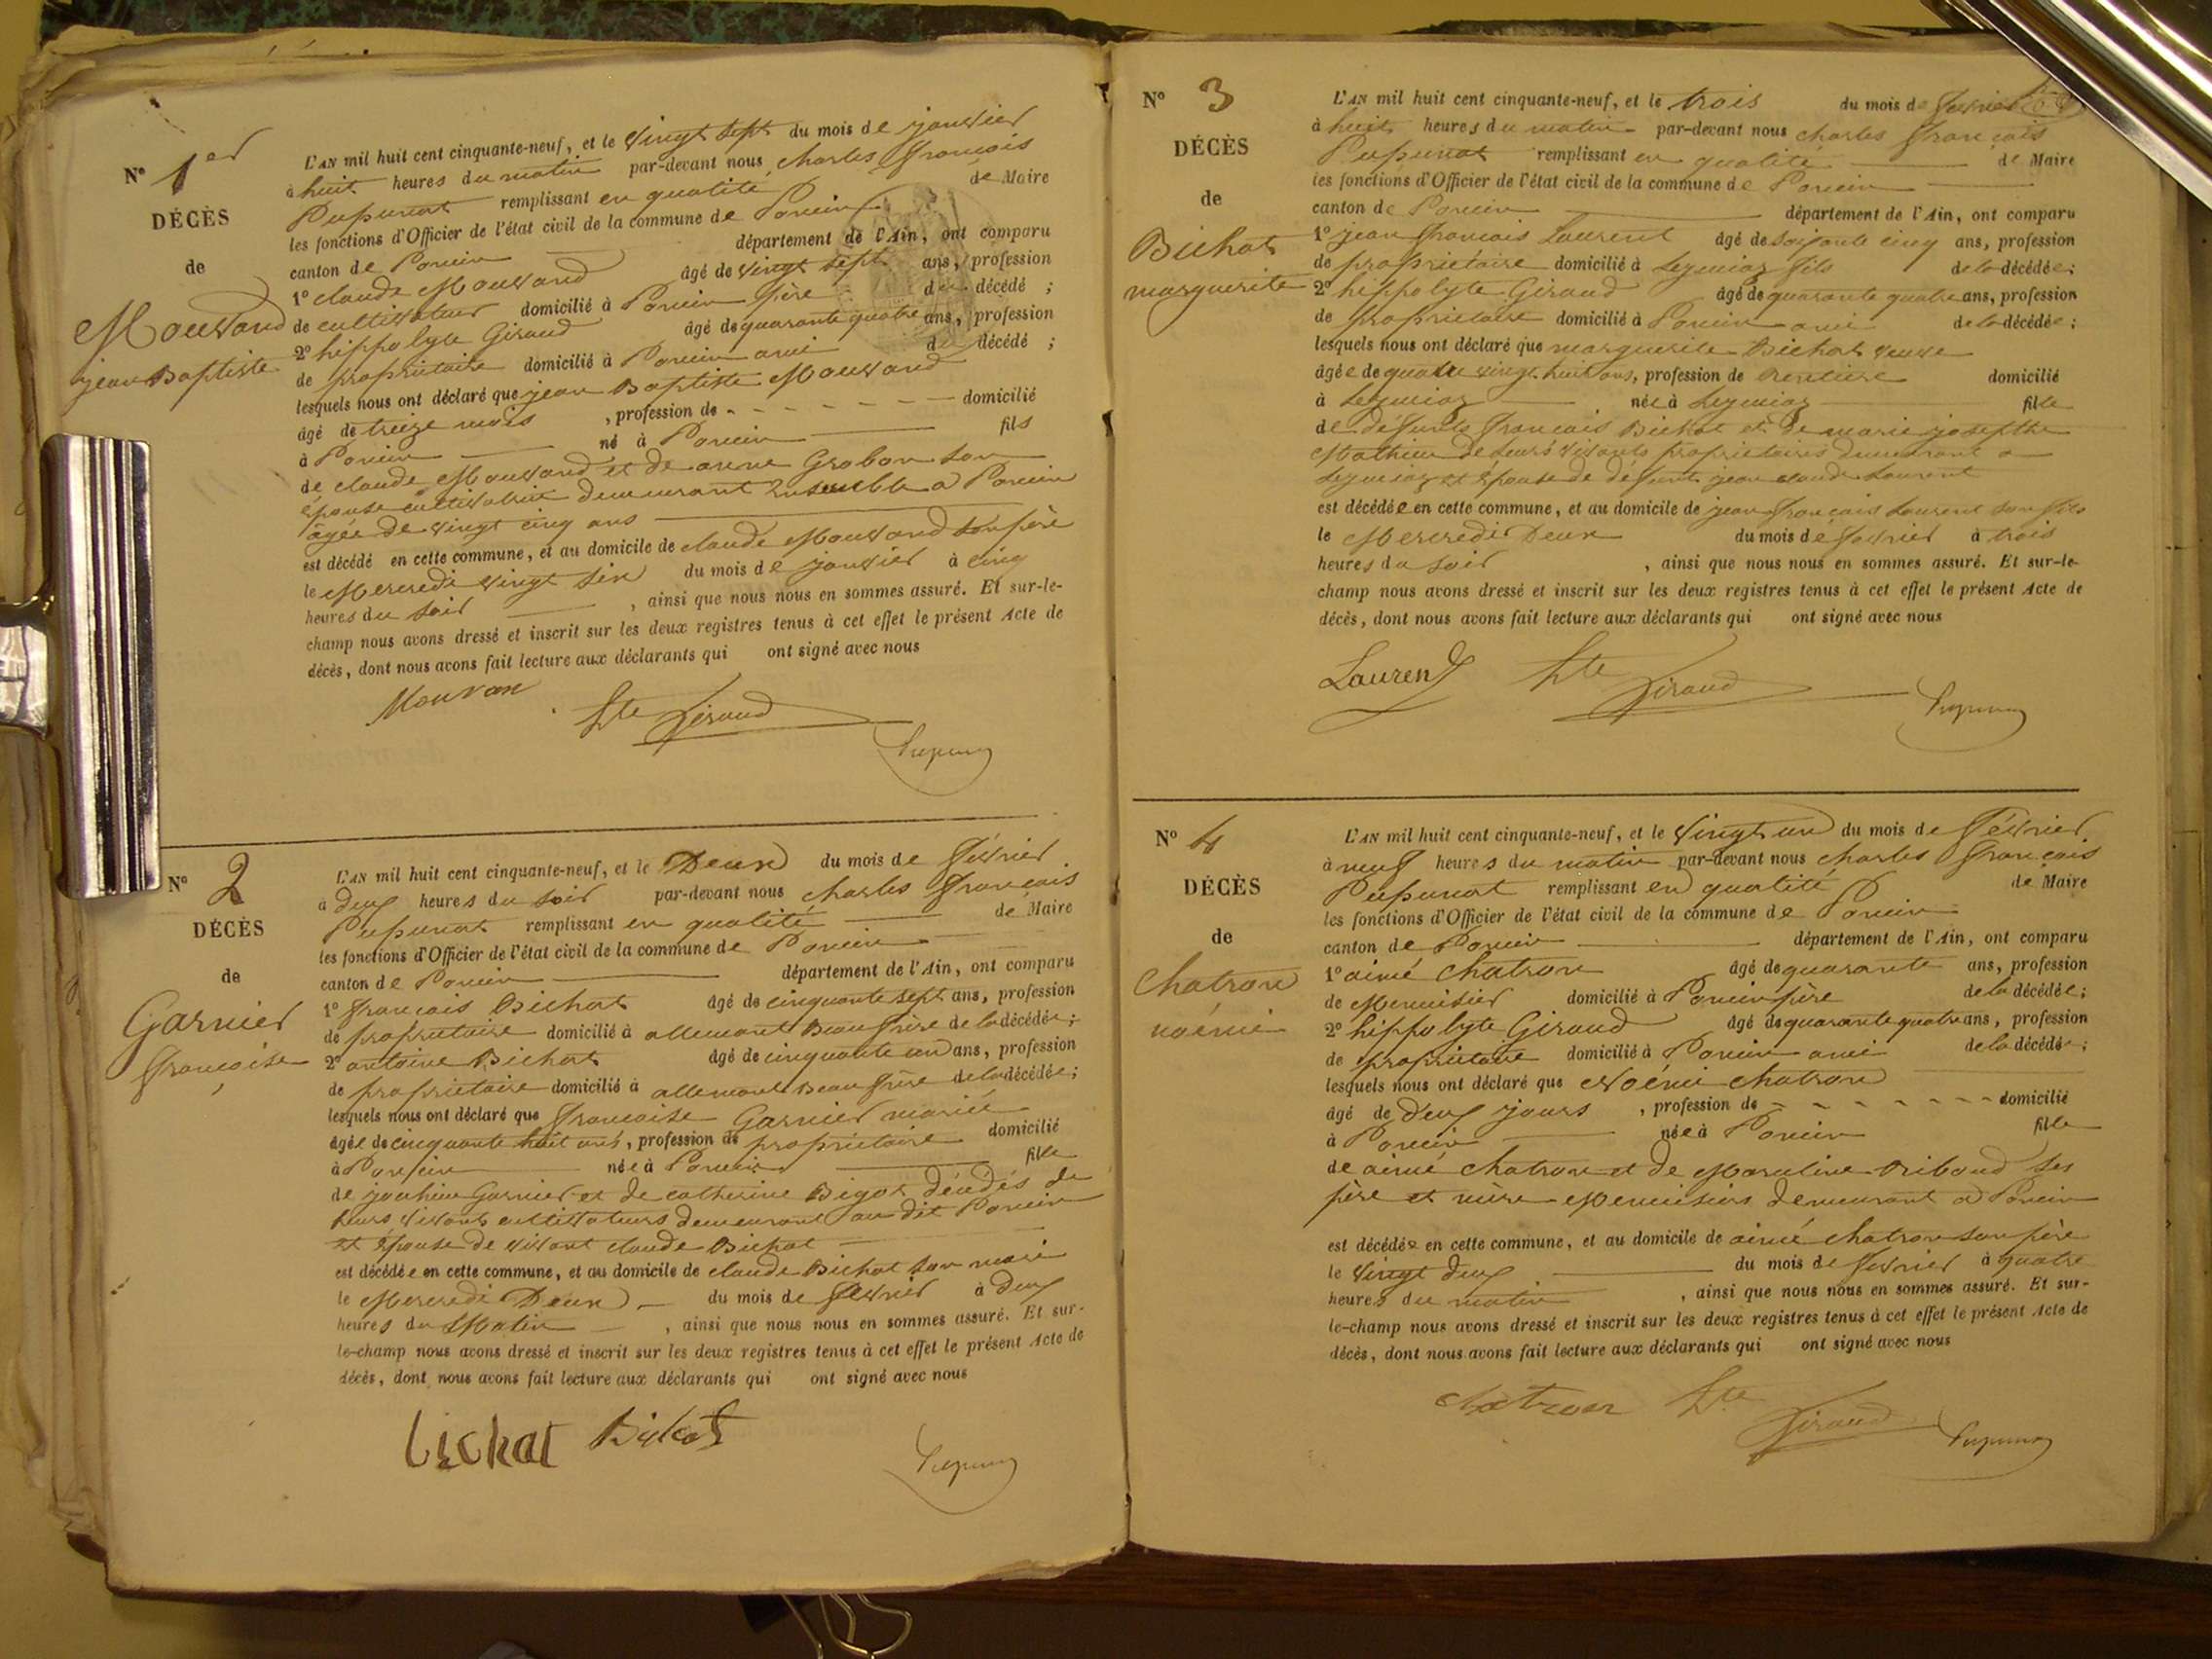 N° 1er
DÉCÈS
de
Mouvand
jean Baptiste
L'AN mil huit cent cinquante-neuf, et le vingt sept du mois de janvier
à huit heures du matin par-devant nous charles françois
Pupunat remplissant en qualité de Maire
les fonctions d'Officier de l'état civil de la commune de Poncin
canton de Poncin département de l'Ain, ont comparu
1° claude Mouvand âgé de vingt sept ans, profession
de cultivateur domicilié à Poncin père du décédé ;
2° hippolyte Giraud âgé de quarante quatre ans, profession
de propriétaire domicilié à Poncin ami du décédé ;
lesquels nous ont déclaré que jean Baptiste Mouvand
âgé de treize mois , profession de - - - - - - - domicilié
à Poncin né à Poncin fils
de claude Mouvand et de anne Grobon son
épouse cultivatrice demeurant ensemble a Poncin
âgée de vingt cinq ans
est décédé en cette commune, et au domicile de claude Mouvand son père
le Mercredi vingt six du mois de janvier à cinq
heures du soir , ainsi que nous nous en sommes assuré. Et sur-le-
champ nous avons dressé et inscrit sur les deux registres tenus à cet effet le présent Acte de
décès, dont nous avons fait lecture aux déclarants qui ont signé avec nous
Mouvan hte Giraud
Pupuna
N° 2
DÉCÈS
de
Garnier
françoise
L'AN mil huit cent cinquante-neuf, et le Deux du mois de février
à deux heures du soir par-devant nous charles françois
Pupunat remplissant en qualité de Maire
les fonctions d'Officier de l'état civil de la commune de Poncin
canton de Poncin département de l'Ain, ont comparu
1° françois Bichat âgé de cinquante sept ans, profession
de propriétaire domicilié à allemant Beau frère de la décédée ;
2° antoine Bichat âgé de cinquante un ans, profession
de propriétaire domicilié à allemant Beau frère de la décédée ;
lesquels nous ont déclaré que françoise Garnier mariée
âgée de cinquante huit ans, profession de propriétaire domicilié
à Poncin née à Poncin fille
de joachim Garnier et de catherine Bigot décédés de
leurs vivants cultivateurs demeurant au dit Poncin
et épouse de vivant claude Bichat
est décédée en cette commune, et au domicile de claude Bichat son mari
le Mercredi Deux du mois de février à deux
heures du Matin , ainsi que nous nous en sommes assuré. Et sur-
le-champ nous avons dressé et inscrit sur les deux registres tenus à cet effet le présent Acte de
décès, dont nous avons fait lecture aux déclarants qui ont signé avec nous
bichat Bichat
Pupuna
N° 3
DÉCÈS
de
Bichat
marguerite
L'AN mil huit cent cinquante-neuf, et le trois du mois de février
à huit heures du matin par-devant nous charles françois
Pupunat remplissant en qualité de Maire
les fonctions d'Officier de l'état civil de la commune de Poncin
canton de Poncin département de l'Ain, ont comparu
1° jean françois Laurent âgé de soixante cinq ans, profession
de propriétaire domicilié à Leymiaz fils de la décédée ;
2° hippolyte Giraud âgé de quarante quatre ans, profession
de propriétaire domicilié à Poncin ami de la décédée ;
lesquels nous ont déclaré que marguerite Bichat veuve
âgée de quatre vingt huit ans, profession de Rentière domicilié
à Leymiaz née à Leymiaz fille
de défunts françois Bichat et de marie josephte
Mathieu de leurs vivants propriétaires demeurant a
Leymiaz et épouse de défunt jean claude Laurent
est décédée en cette commune, et au domicile de jean françois Laurent son fils
le Mercredi Deux du mois de février à trois
heures du soir , ainsi que nous nous en sommes assuré. Et sur-le-
champ nous avons dressé et inscrit sur les deux registres tenus à cet effet le présent Acte de
décès, dont nous avons fait lecture aux déclarants qui ont signé avec nous
Laurent hte Giraud
Pupuna
N° 4
DÉCÈS
de
Chatron
noémi
L'AN mil huit cent cinquante-neuf, et le vingt un du mois de février
à neuf heures du matin par-devant nous charles françois
Pupunat remplissant en qualité de Maire
les fonctions d'Officier de l'état civil de la commune de Poncin
canton de Poncin département de l'Ain, ont comparu
1° aimé chatron âgé de quarante ans, profession
de Menuisier domicilié à Poncin père de la décédée ;
2° hippolyte Giraud âgé de quarante quatre ans, profession
de propriétaire domicilié à Poncin ami de la décédée ;
lesquels nous ont déclaré que Noémi chatron
âgé de deux jours , profession de - - - - - - - domicilié
à Poncin née à Poncin fille
de aimé chatron et de Ribaud ses
père et mère Menuisiers demeurant a Poncin
est décédée en cette commune, et au domicile de aimé chatron son père
le vingt deux du mois de février à quatre
heures du matin , ainsi que nous nous en sommes assuré. Et sur-
le-champ nous avons dressé et inscrit sur les deux registres tenus à cet effet le présent Acte de
décès, dont nous avons fait lecture aux déclarants qui ont signé avec nous
chatron hte Giraud Pupuna